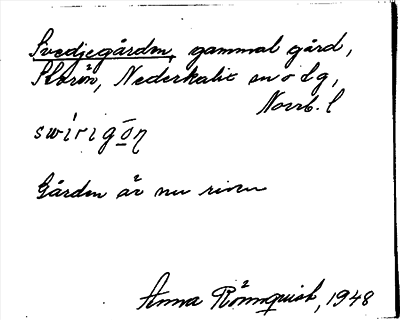 Svedjegården, gammal gård,
Storön, Nederkalix sn o lg,
Norrb. l
swirigōn
Gården är nu riven
Anna Rönnquist, 1948